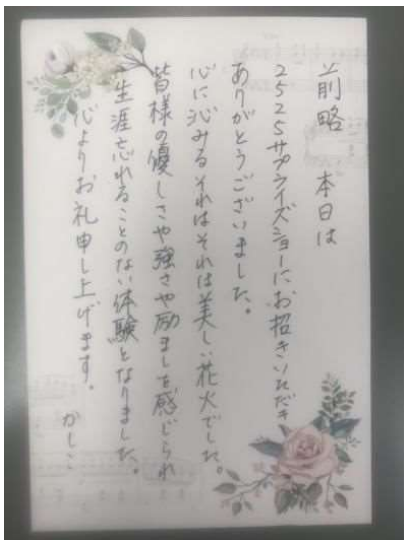 前略　本日は
2525サプライズショーにお招きいただき
ありがとうございました。
心に沁みるそれはそれは美しい花火でした。
皆様の優しさや強さや励ましを感じられ
一生涯忘れることのない体験となりました。
心よりお礼申し上げます。
かしこ